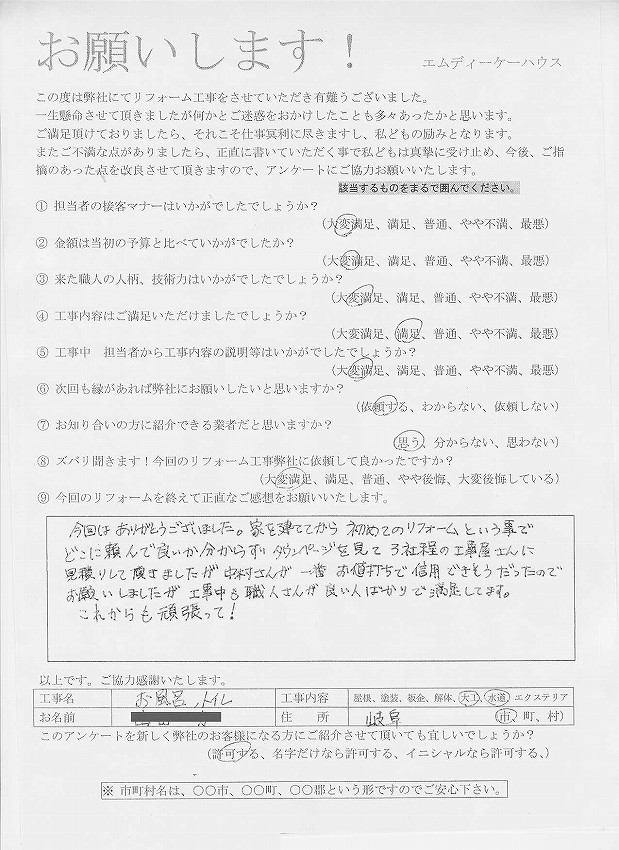 お願いします！
エムディーケーハウス
この度は弊社にてリフォーム工事をさせていただき有難うございました。
一生懸命させて頂きましたが何かとご迷惑をおかけしたことも多々あったかと思います。
ご満足頂けておりましたら、それこそ仕事冥利に尽きますし、私どもの励みとなります。
またご不満な点がありましたら、正直に書いていただく事で私どもは真摯に受け止め、今後、ご指
摘のあった点を改良させて頂きますので、アンケートにご協力お願いいたします。
該当するものをまるで囲んでください。
① 担当者の接客マナーはいかがでしたでしょうか？
（大変満足、満足、普通、やや不満、最悪）
② 金額は当初の予算と比べていかがでしたか？
（大変満足、満足、普通、やや不満、最悪）
③ 来た職人の人柄、技術力はいかがでしたでしょうか？
（大変満足、満足、普通、やや不満、最悪）
④ 工事内容はご満足いただけましたでしょうか？
（大変満足、満足、普通、やや不満、最悪）
⑤ 工事中　担当者から工事内容の説明等はいかがでしたでしょうか？
（大変満足、満足、普通、やや不満、最悪）
⑥ 次回も縁があれば弊社にお願いしたいと思いますか？
（依頼する、わからない、依頼しない）
⑦ お知り合いの方に紹介できる業者だと思いますか？
（思う、分からない、思わない）
⑧ ズバリ聞きます！今回のリフォーム工事弊社に依頼して良かったですか？
（大変満足、満足、普通、やや後悔、大変後悔している）
⑨ 今回のリフォームを終えて正直なご感想をお願いいたします。
今回はありがとうございました。家を建ててから初めてのリフォームという事で
どこに頼んで良いか分からずタウンページを見て3社程の工事屋さんに
見積りして頂きましたが中村さんが一番お値打ちで信用できそうだったので
お願いしましたが工事中も職人さんが良い人ばかりで満足してます。
これからも頑張って！
以上です。ご協力感謝いたします。
工事名　お風呂、トイレ　工事内容　屋根、塗装、板金、解体、大工、水道、エクステリア
お名前　住　所　岐阜　（市、町、村）
このアンケートを新しく弊社のお客様になる方にご紹介させて頂いても宜しいでしょうか？
（許可する、名字だけなら許可する、イニシャルなら許可する、）
※ 市町村名は、〇〇市、〇〇町、〇〇郡という形ですのでご安心下さい。